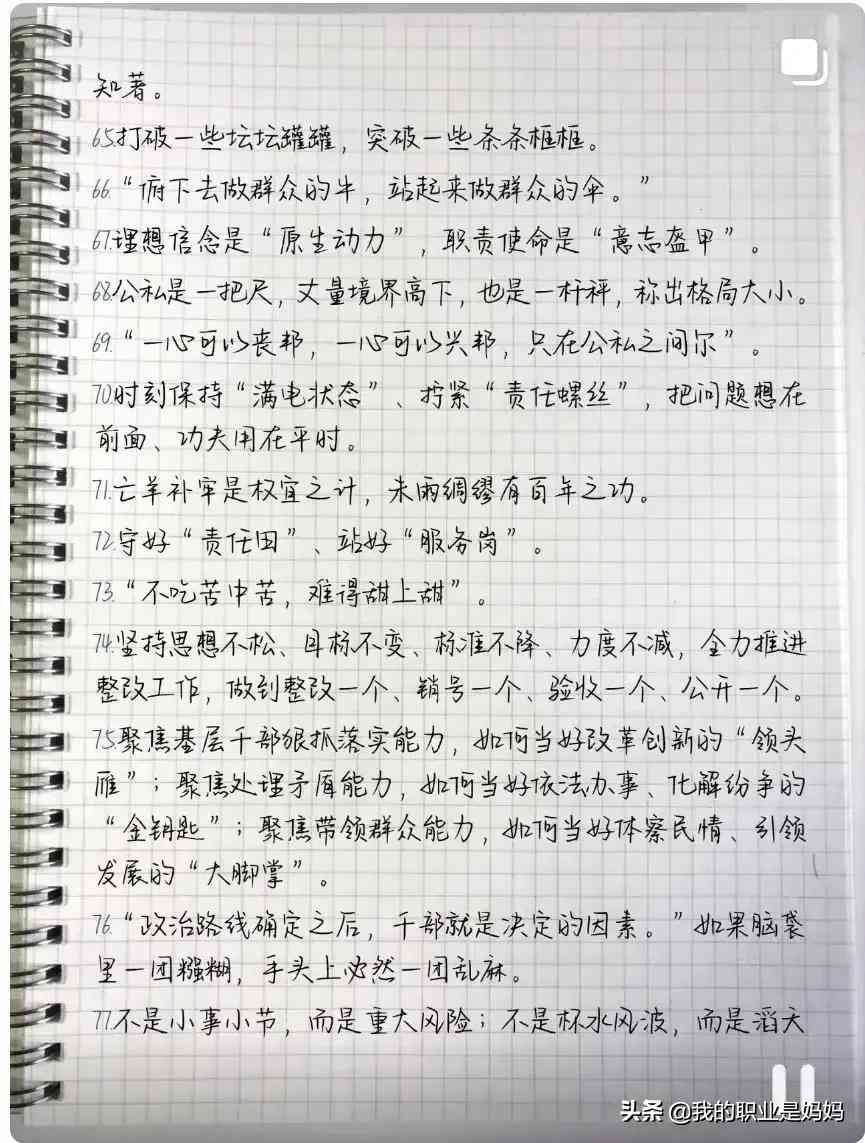 知著。
65.打破一些坛坛罐罐，突破一些条条框框。
66.“俯下去做群众的牛，站起来做群众的伞。”
67.理想信念是“原生动力”，职责使命是“意志盔甲”。
68.公私是一把尺，丈量境界高下，也是一杆秤，称出格局大小。
69.“一心可以丧邦，一心可以兴邦，只在公私之间尔”。
70.时刻保持“满电状态”、拧紧“责任螺丝”，把问题想在
前面、功夫用在平时。
71.亡羊补牢是权宜之计，未雨绸缪有百年之功。
72.守好“责任田”、站好“服务岗”。
73.“不吃苦中苦，难得甜上甜”。
74.坚持思想不松、目标不变、标准不降、力度不减，全力推进
整改工作，做到整改一个、销号一个、验收一个、公开一个。
75.聚焦基层干部狠抓落实能力，如何当好改革创新的“领头
雁”；聚焦处理矛盾能力，如何当好依法办事、化解纷争的
“金钥匙”；聚焦带领群众能力，如何当好体察民情、引领
发展的“大脚掌”。
76.“政治路线确定之后，干部就是决定的因素。”如果脑袋
里一团糨糊，手头上必然一团乱麻。
77.不是小事小节，而是重大风险；不是杯水风波，而是滔天
头条 @我的职业是妈妈